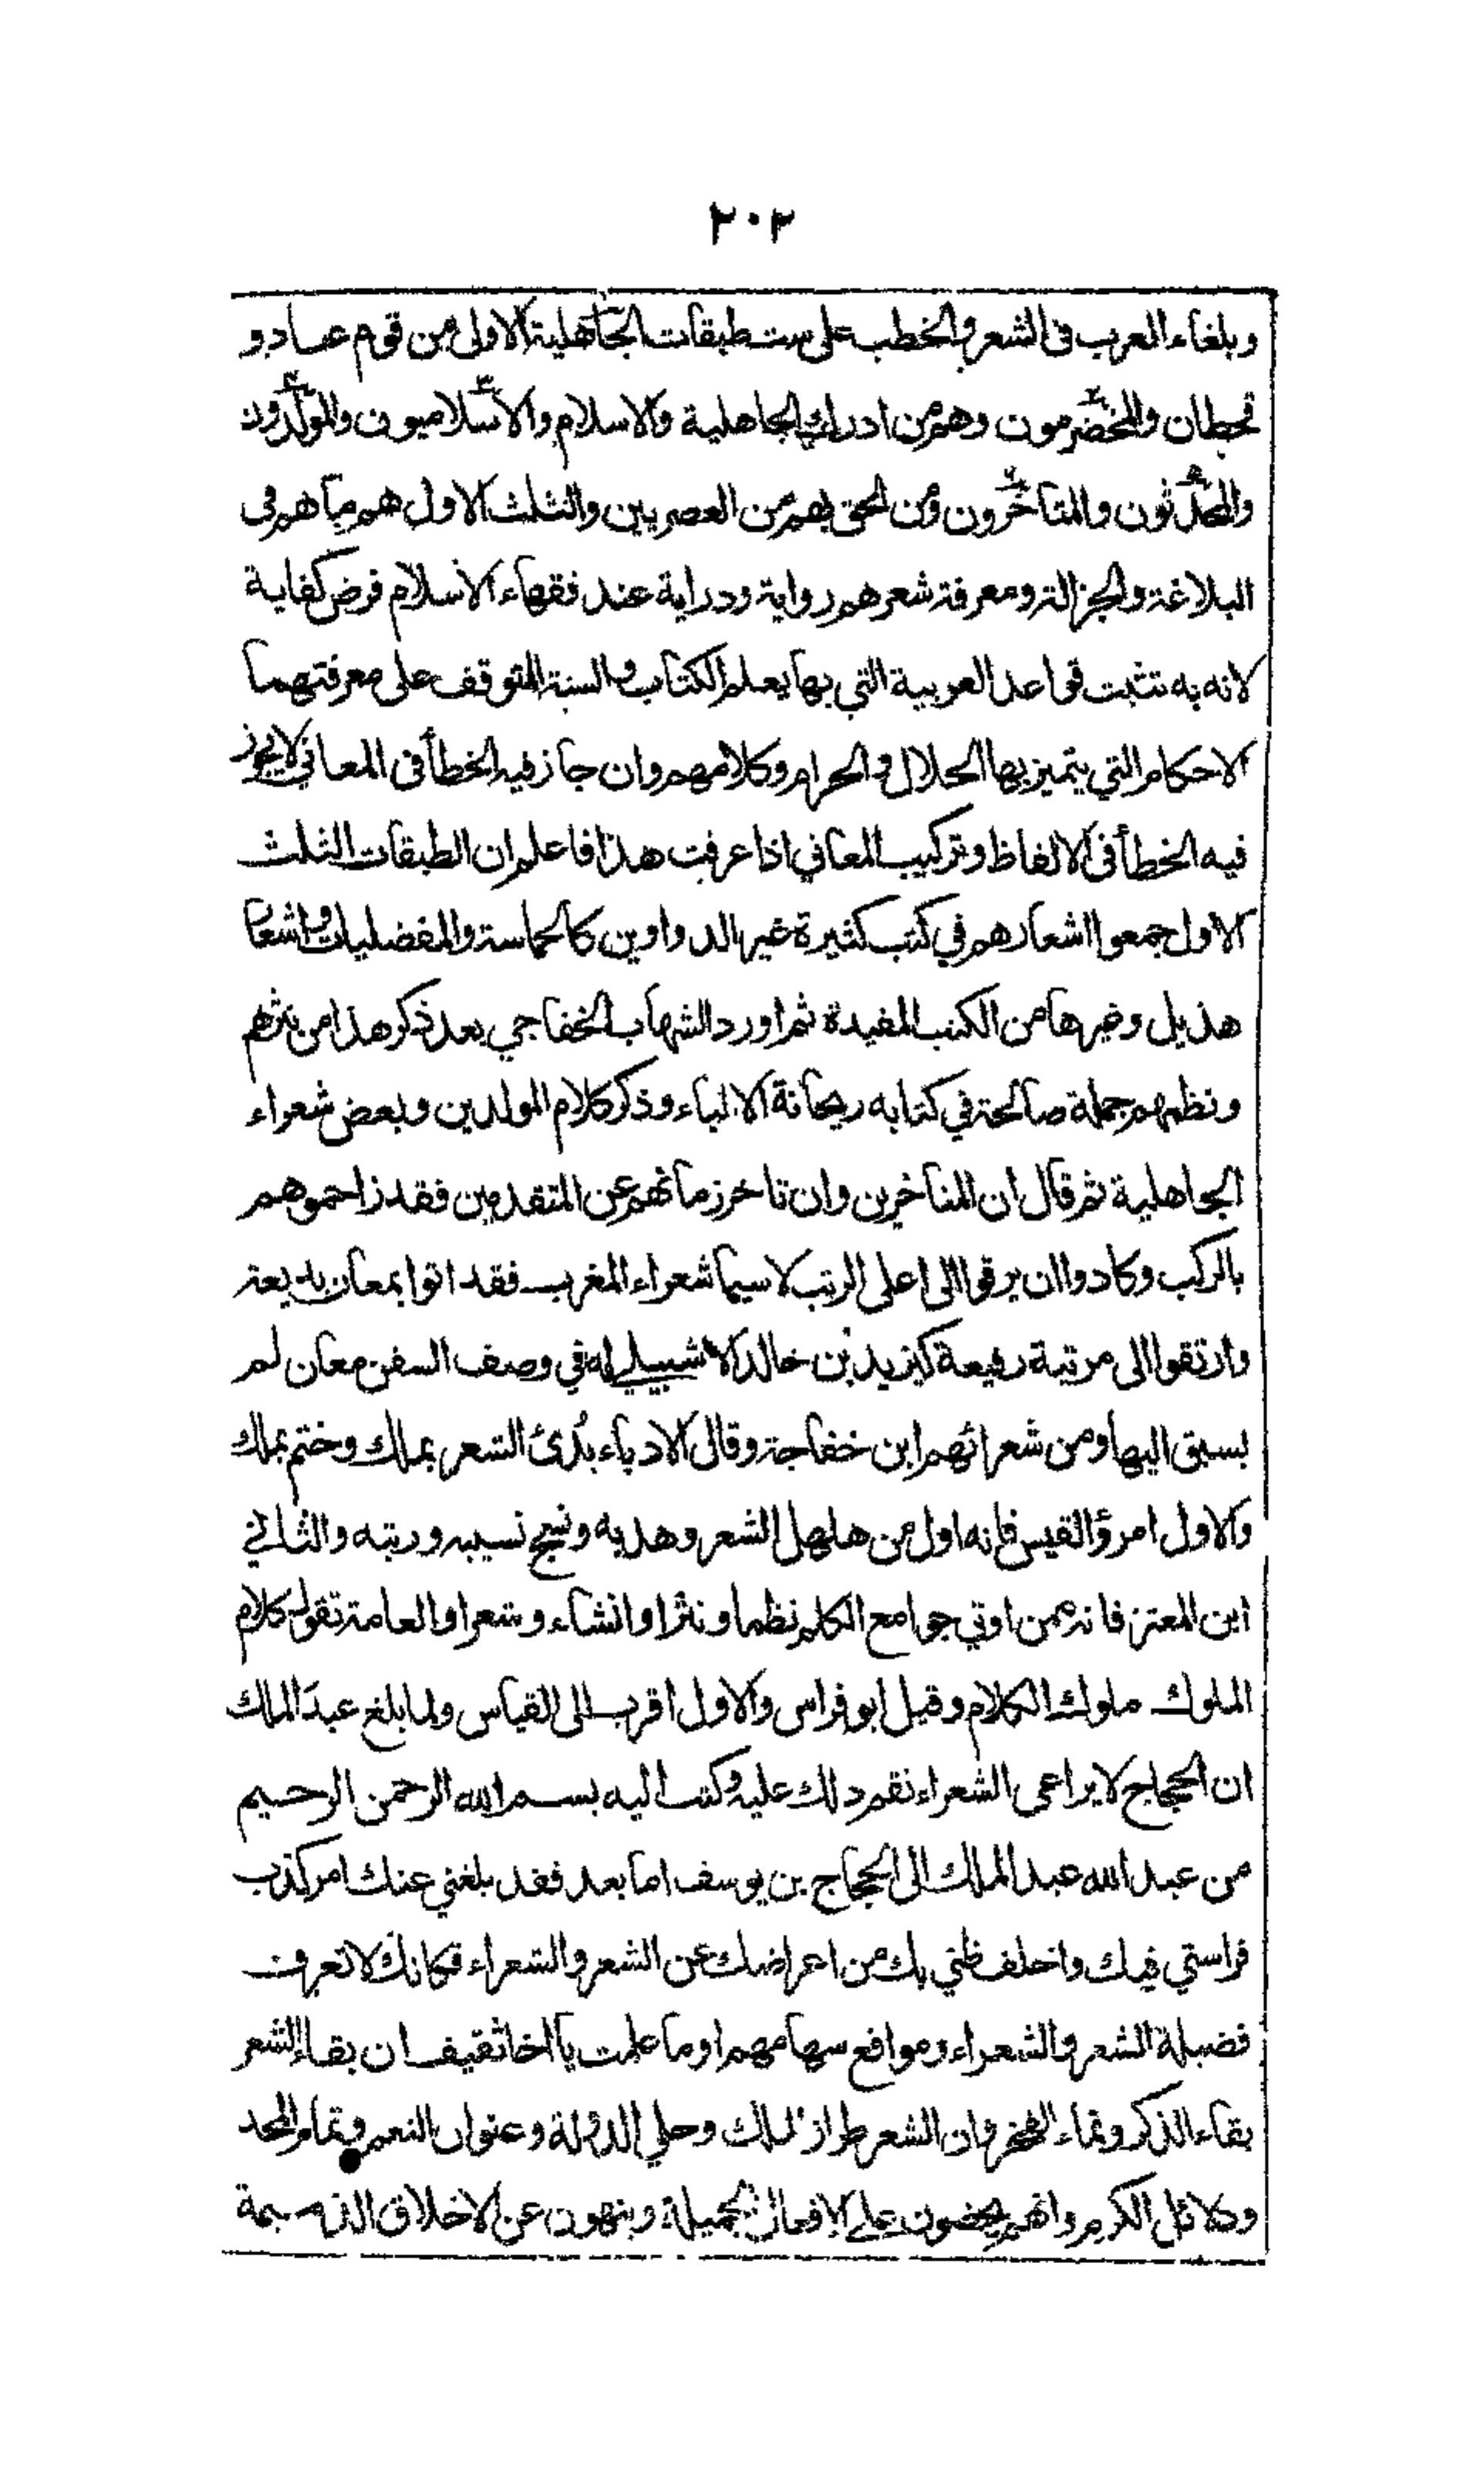 ٢٠٢
وبلغاء العرب فى الشعر والخطب على ست طبقات الجاهلية الاولى من قوم عاد و
قحطان والمخضرمون وهم من ادرك الجاهلية والاسلام والاسلاميون والمولدون
والمحدثون والمتاخرون ومن لحق بهم من العصريين والثلث الاول هم ما هم فى
البلاغة والجزالة ومعرفة شعرهم رواية ودراية عند فقهاء الاسلام فرض كفاية
لانه به تثبت قواعد العربية التي بها يعلم الكتاب والسنة المتوقف على معرفتهما
الاحكام التي يتميز بها الحلال والحرام وكلامهم وان جاز فيه الخطأ فى المعاني لا يجوز
فيه الخطأ فى الالفاظ وتركيب المعاني اذا عرفت هذا فاعلم ان الطبقات الثلث
الاول جمعوا اشعارهم في كتب كثيرة غير الدواوين كالحماسة والمفضليات واشعار
هذيل وغيرها من الكتب المفيدة ثم اورد الشهاب الخفاجي بعد ذكر هذا من نثرهم
ونظمهم جملة صالحة في كتابه ريحانة الالباء وذكر كلام المولدين وبعض شعراء
الجاهلية ثم قال ان المتاخرين وان تاخر زمانهم عن المتقدمين فقد زاحموهم
بالركب وكادوا ان يرقوا الى اعلى الرتب لا سيما شعراء المغرب فقد اتوا بمعان بديعة
وارتقوا الى مرتبة رفيعة كيزيد بن خالد الاشبيلي له في وصف السفن معان لم
يسبق اليها ومن شعرائهم ابن خفاجة وقال الادباء بُدئ الشعر بملك وختم بملك
والاول امرؤ القيس فانه اول من هلهل الشعر وهذبه ونسج نسيبه ورتبه والثاني
ابن المعتز فانه ممن اوتي جوامع الكلم نظما ونثرا وانشاء وشعرا والعامة تقول كلام
الملوك ملوك الكلام وقيل ابو فراس والاول اقرب الى القياس ولما بلغ عبد الملك
ان الحجاج لا يراعى الشعراء نقم ذلك عليه وكتب اليه بسم الله الرحمن الرحيم
من عبد الله عبد الملك الى الحجاج بن يوسف اما بعد فقد بلغني عنك امر كذب
فراستي فيك واخلف ظني بك من اعراضك عن الشعر والشعراء فكانك لا تعرف
فضيلة الشعر والشعراء ومواقع سهامهم او ما علمت يا اخا ثقيف ان بقاء الشعر
بقاء الذكر ونماء الفخر وان الشعر طراز الملك وحلي الدولة وعنوان النعم وتمام المجد
ودلائل الكرم وانهم يحضون على الافعال الجميلة وينهون عن الاخلاق الذميمة